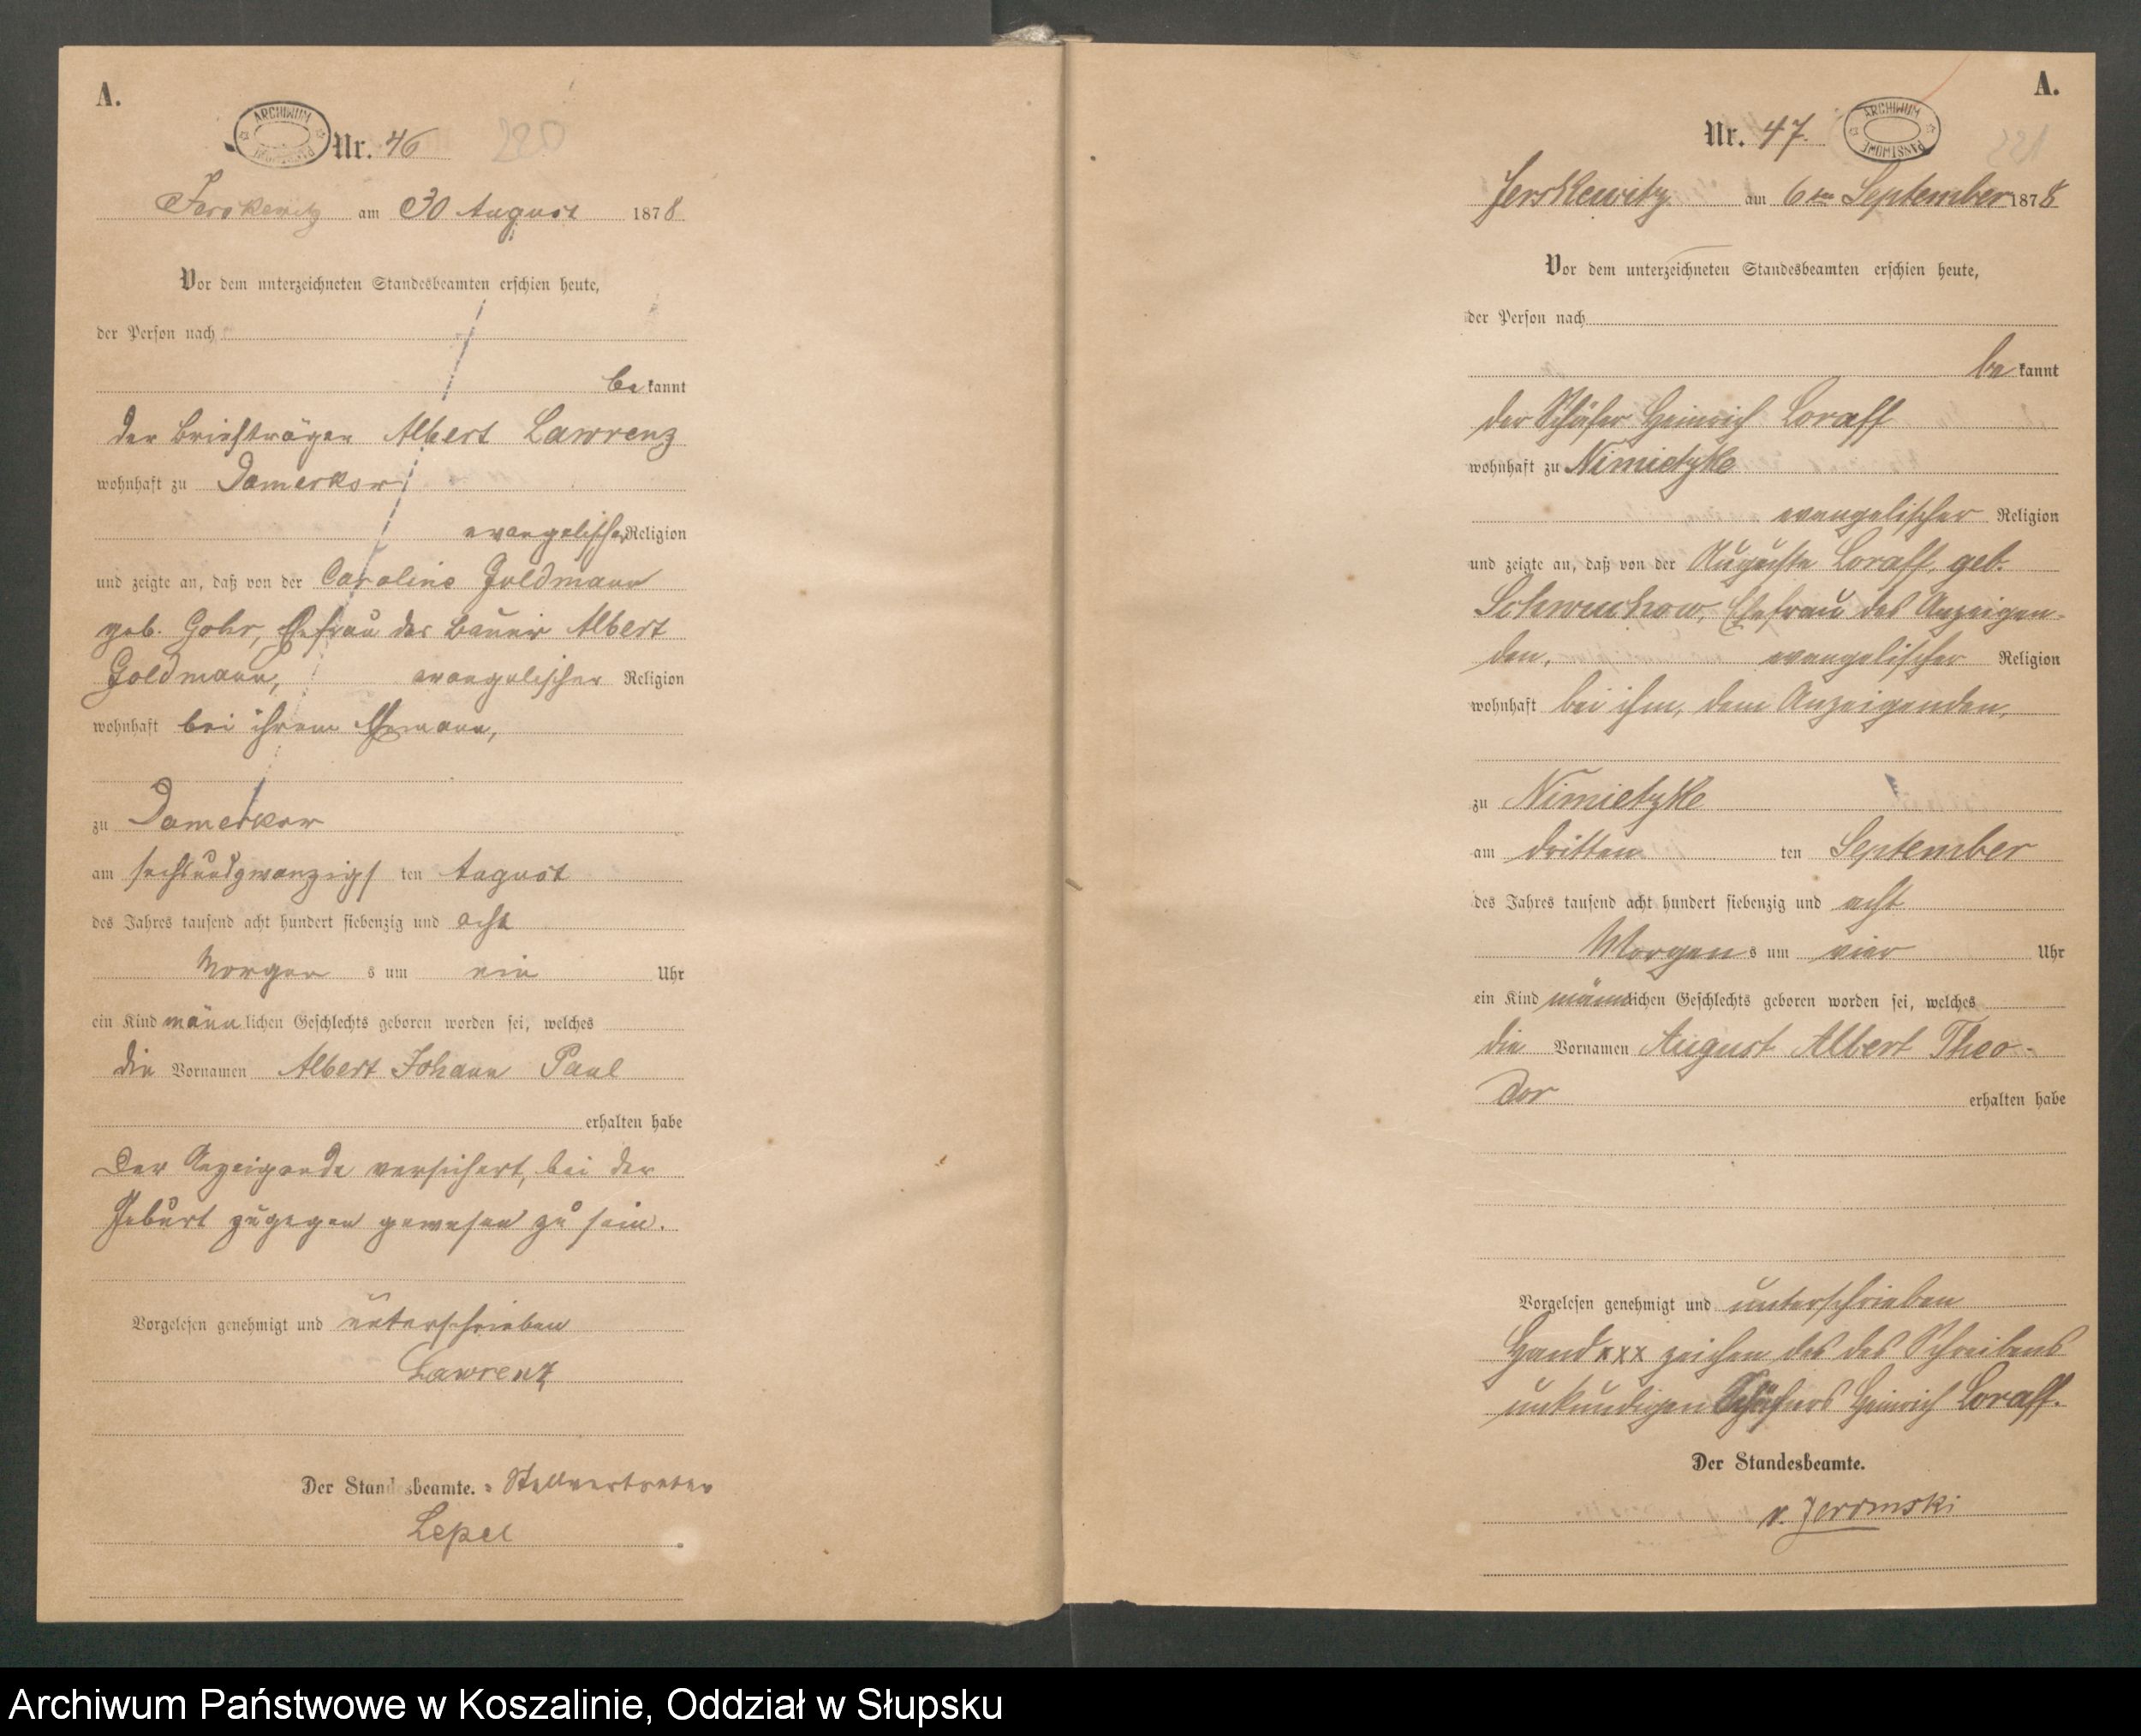 A.
ARCHIWUM PAŃSTWOWE
Nr. 46
220
Jerskewitz am 30 August 1878
Vor dem unterzeichneten Standesbeamten erschien heute,
der Person nach
bekannt
der Briefträger Albert Lawrenz
wohnhaft zu Damerkow
evangelischer Religion
und zeigte an, daß von der Caroline Goldmann
geb. Gohr, Ehefrau des Bauer Albert
Goldmann, evangelischer Religion
wohnhaft bei ihrem Ehemann,
zu Damerkow
am sechsundzwanzigsten August
des Jahres tausend acht hundert siebenzig und acht
Morgens um ein Uhr
ein Kind männlichen Geschlechts geboren worden sei, welches
die Vornamen Albert Johann Paul
erhalten habe
Der Anzeigende versichert, bei der
Geburt zugegen gewesen zu sein.
Vorgelesen genehmigt und unterschrieben
Lawrenz
Der Standesbeamte. Stellvertreter
Lepel
A.
Nr. 47.
ARCHIWUM PAŃSTWOWE
221
Jerskewitz am 6ten September 1878
Vor dem unterzeichneten Standesbeamten erschien heute,
der Person nach
bekannt
der Schäfer Heinrich Loraff
wohnhaft zu Nimietzke
evangelischer Religion
und zeigte an, daß von der Auguste Loraff, geb.
Schwuchow, Ehefrau des Anzeigen-
den, evangelischer Religion
wohnhaft bei ihm, dem Anzeigenden,
zu Nimietzke
am dritten ten September
des Jahres tausend acht hundert siebenzig und acht
Morgens um vier Uhr
ein Kind männlichen Geschlechts geboren worden sei, welches
die Vornamen August Albert Theo-
dor erhalten habe
Vorgelesen genehmigt und unterschrieben
Hand xxx zeichen des des Schreibens
unkundigen Schäfers Heinrich Loraff.
Der Standesbeamte.
Archiwum Państwowe w Koszalinie, Oddział w Słupsku